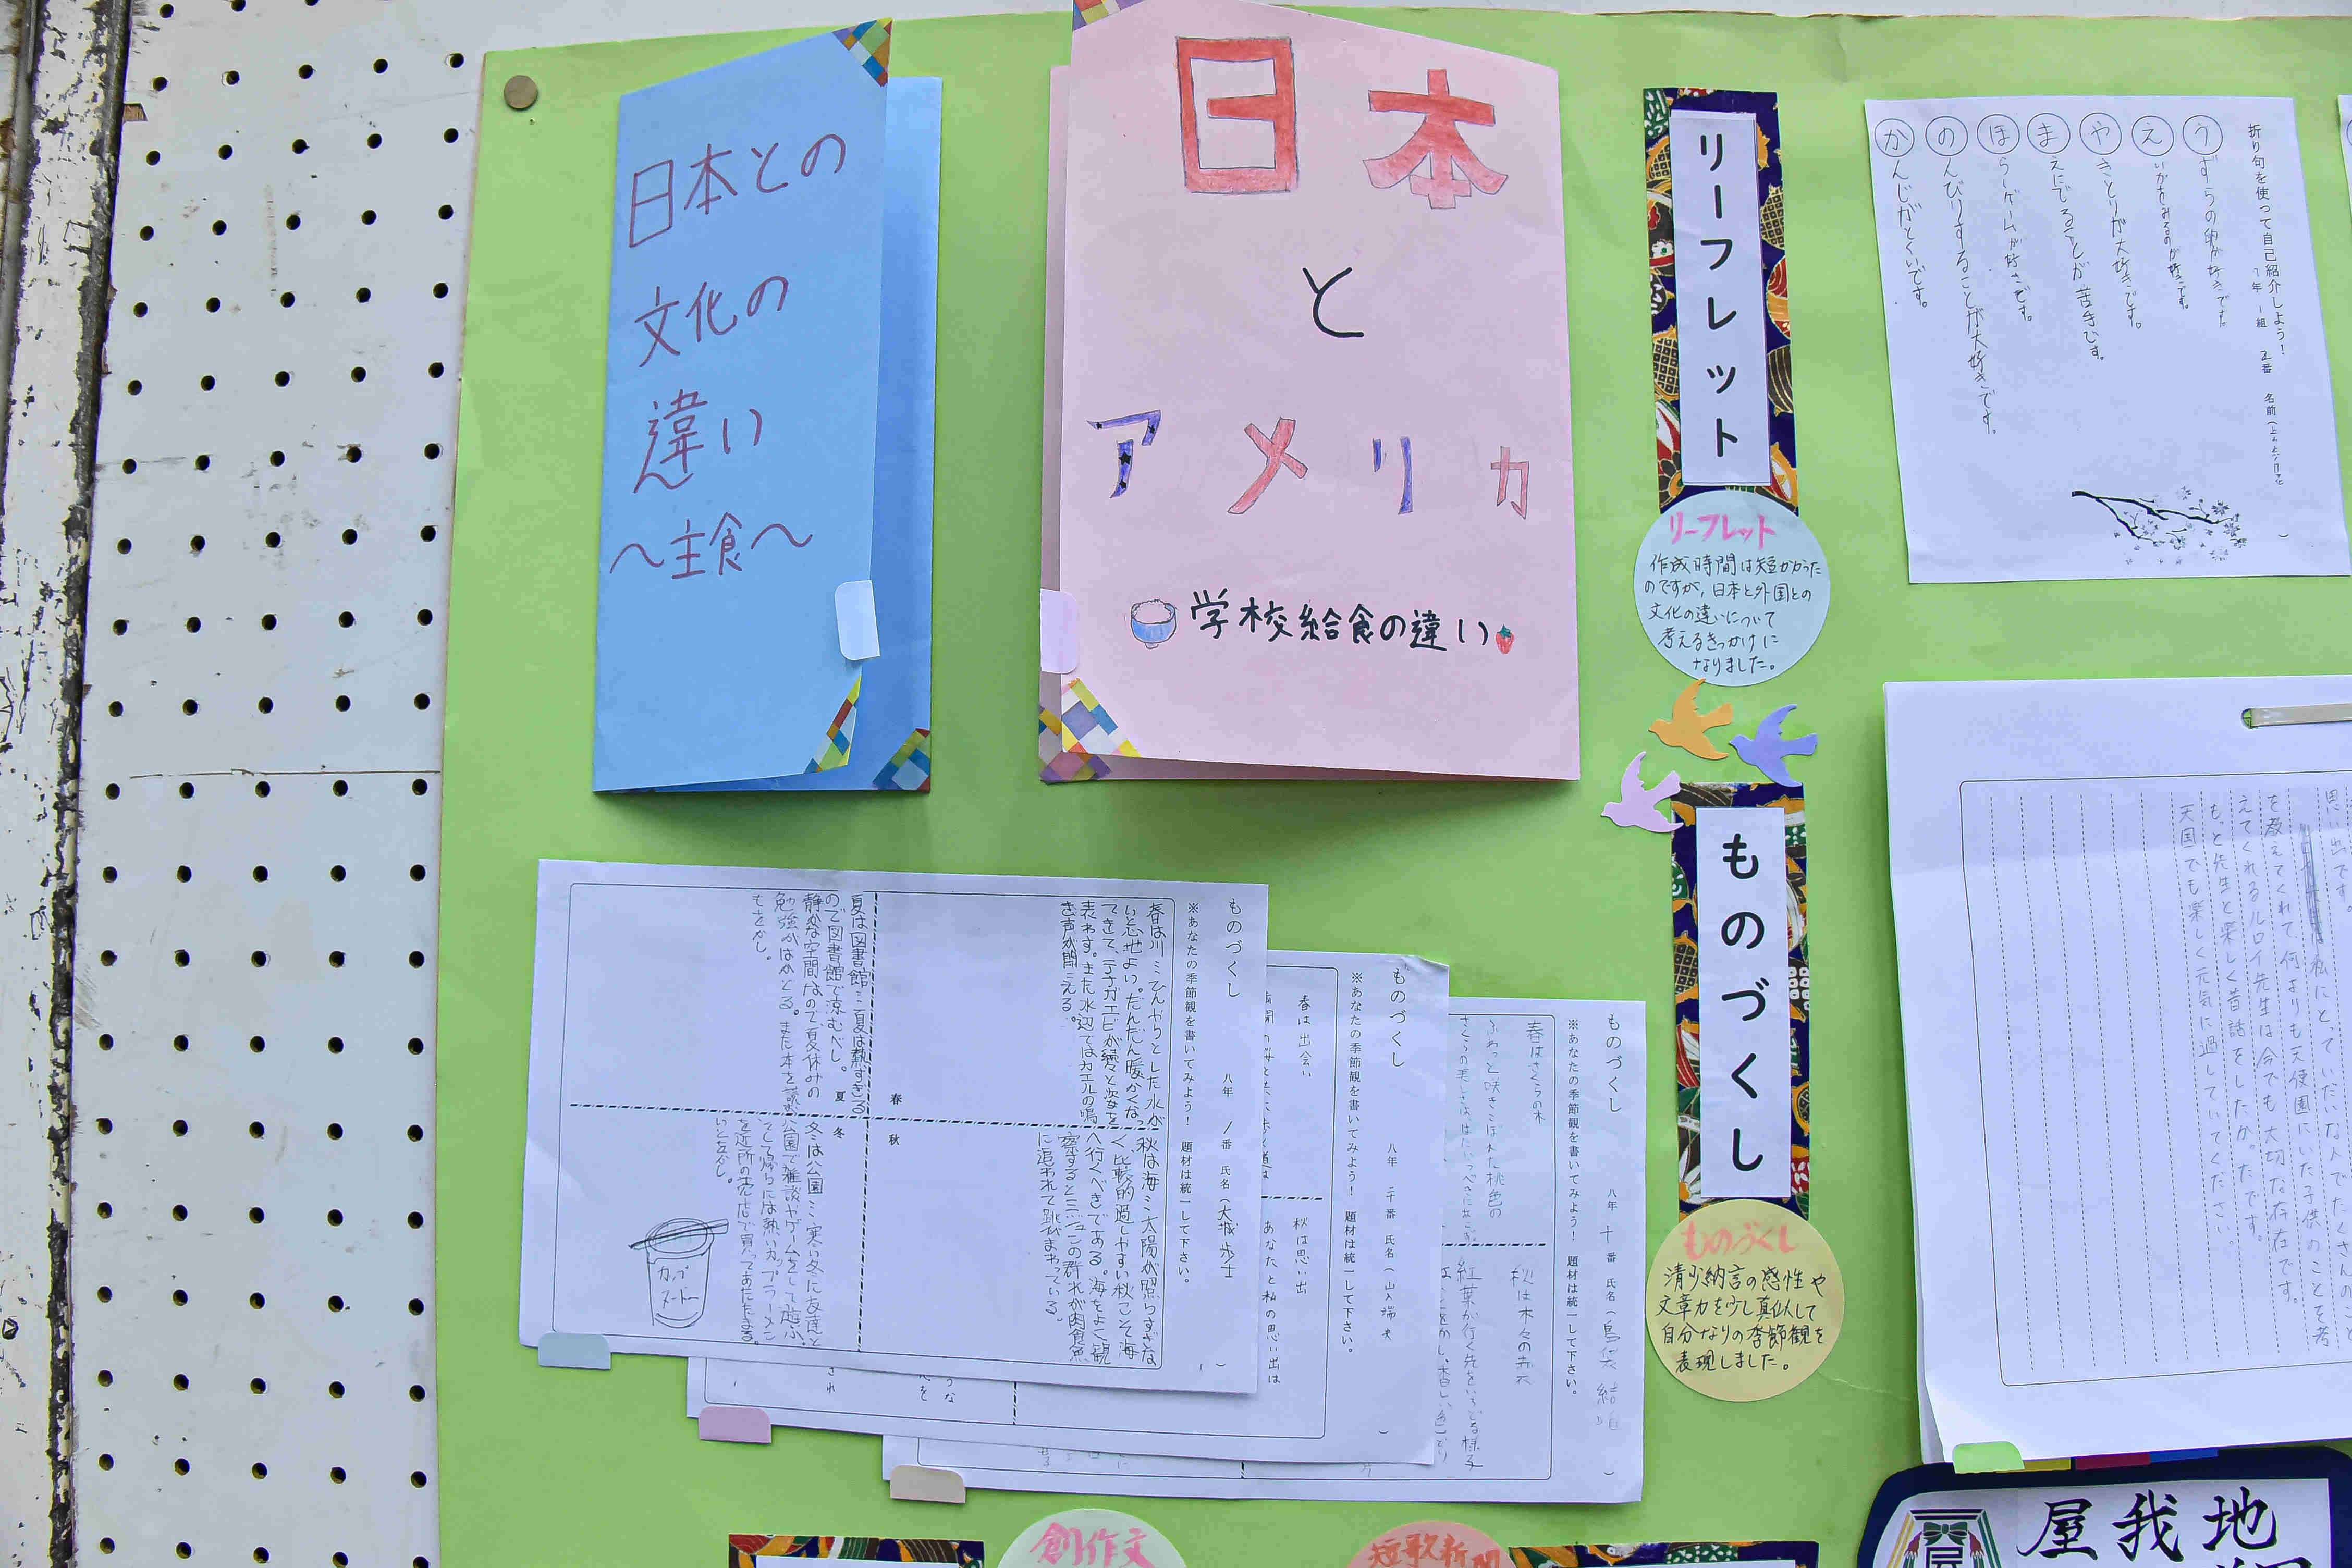 日本との
文化の
違い
～主食～
日本
と
アメリカ
学校給食の違い
リーフレット
リーフレット
作成時間は短かかった
のですが、日本と外国との
文化の違いについて
考えるきっかけに
なりました。
折り句を使って自己紹介しよう！
7年 1組 2番 名前（
うずらの卵が好きです。
えいがをみるのが好きです。
やきとりが大好きです。
まえにでることが苦手です。
ほらーゲームが好きです。
のんびりすることが大好きです。
かんじがとくいです。
ものづくし
ものづくし
清少納言の感性や
文章力を少し真似して
自分なりの季節観を
表現しました。
ものづくし 八年 1番 氏名（大城歩士）
※あなたの季節観を書いてみよう！ 題材は統一して下さい。
春は川ミひんやりとした水が
心地よい。だんだん暖かくなっ
てきて、テナガエビが続々と姿を
表わす。また水辺ではカエルの鳴
き声が聞こえる。
春
夏は図書館ミ夏は熱すぎる
ので図書館で涼むべし。
静かな空間なので夏休みの
勉強がはかどる。また本を読む
もをかし。
夏
秋は海ミ太陽が照らすぎな
く、比較的過しやすい秋こそ海
へ行くべきである。海をよく観
察するとミジュンの群れが肉食魚
に追われて跳びまわっている。
秋
冬は公園ミ寒い冬に友達と
公園で雑談やゲームをして遊ぶ。
そして帰りには熱いカップラーメン
を近所の売店で買ってあたたまる。
いとをかし。
冬
カップ
ヌードー
ものづくし 八年 二十番 氏名（山入端
※あなたの季節観を書いてみよう！ 題材は統一して下さい。
春は出会い
秋は思い出
あなたと私の思い出は
ものづくし 八年 十番 氏名（島袋 結
※あなたの季節観を書いてみよう！ 題材は統一して下さい。
春はさくらの木
ふわっと咲きこぼれた桃色の
秋は木々の
紅葉が行く先をいろどる様子
思い出です。
私にとっていだいな人でたくさんの
を教えてくれて、何よりも天使園にいた子供のことを考
えてくれるルロイ先生は今でも大切な存在です。
もっと先生と楽しく昔話をしたかったです。
天国でも楽しく元気に過していてください。
創作文
短歌新聞
屋我地